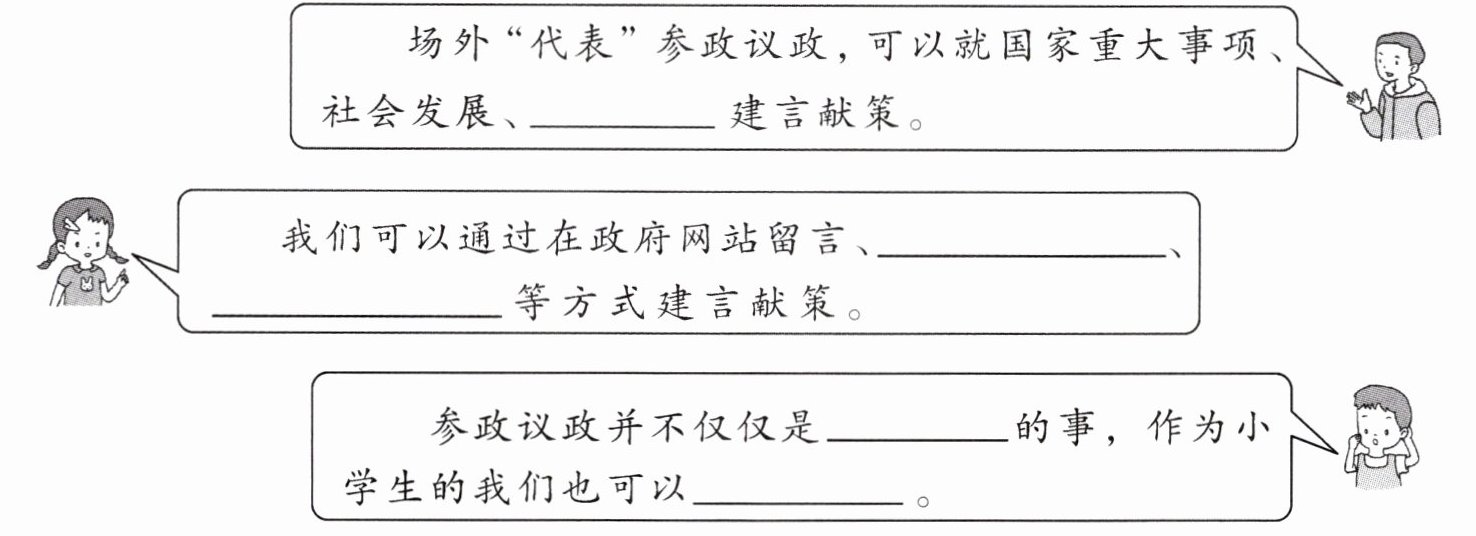 场外“代表”参政议政，可以就国家重大事项、
社会发展、________建言献策。
我们可以通过在政府网站留言、____________、
____________等方式建言献策。
参政议政并不仅仅是________的事，作为小
学生的我们也可以_________。